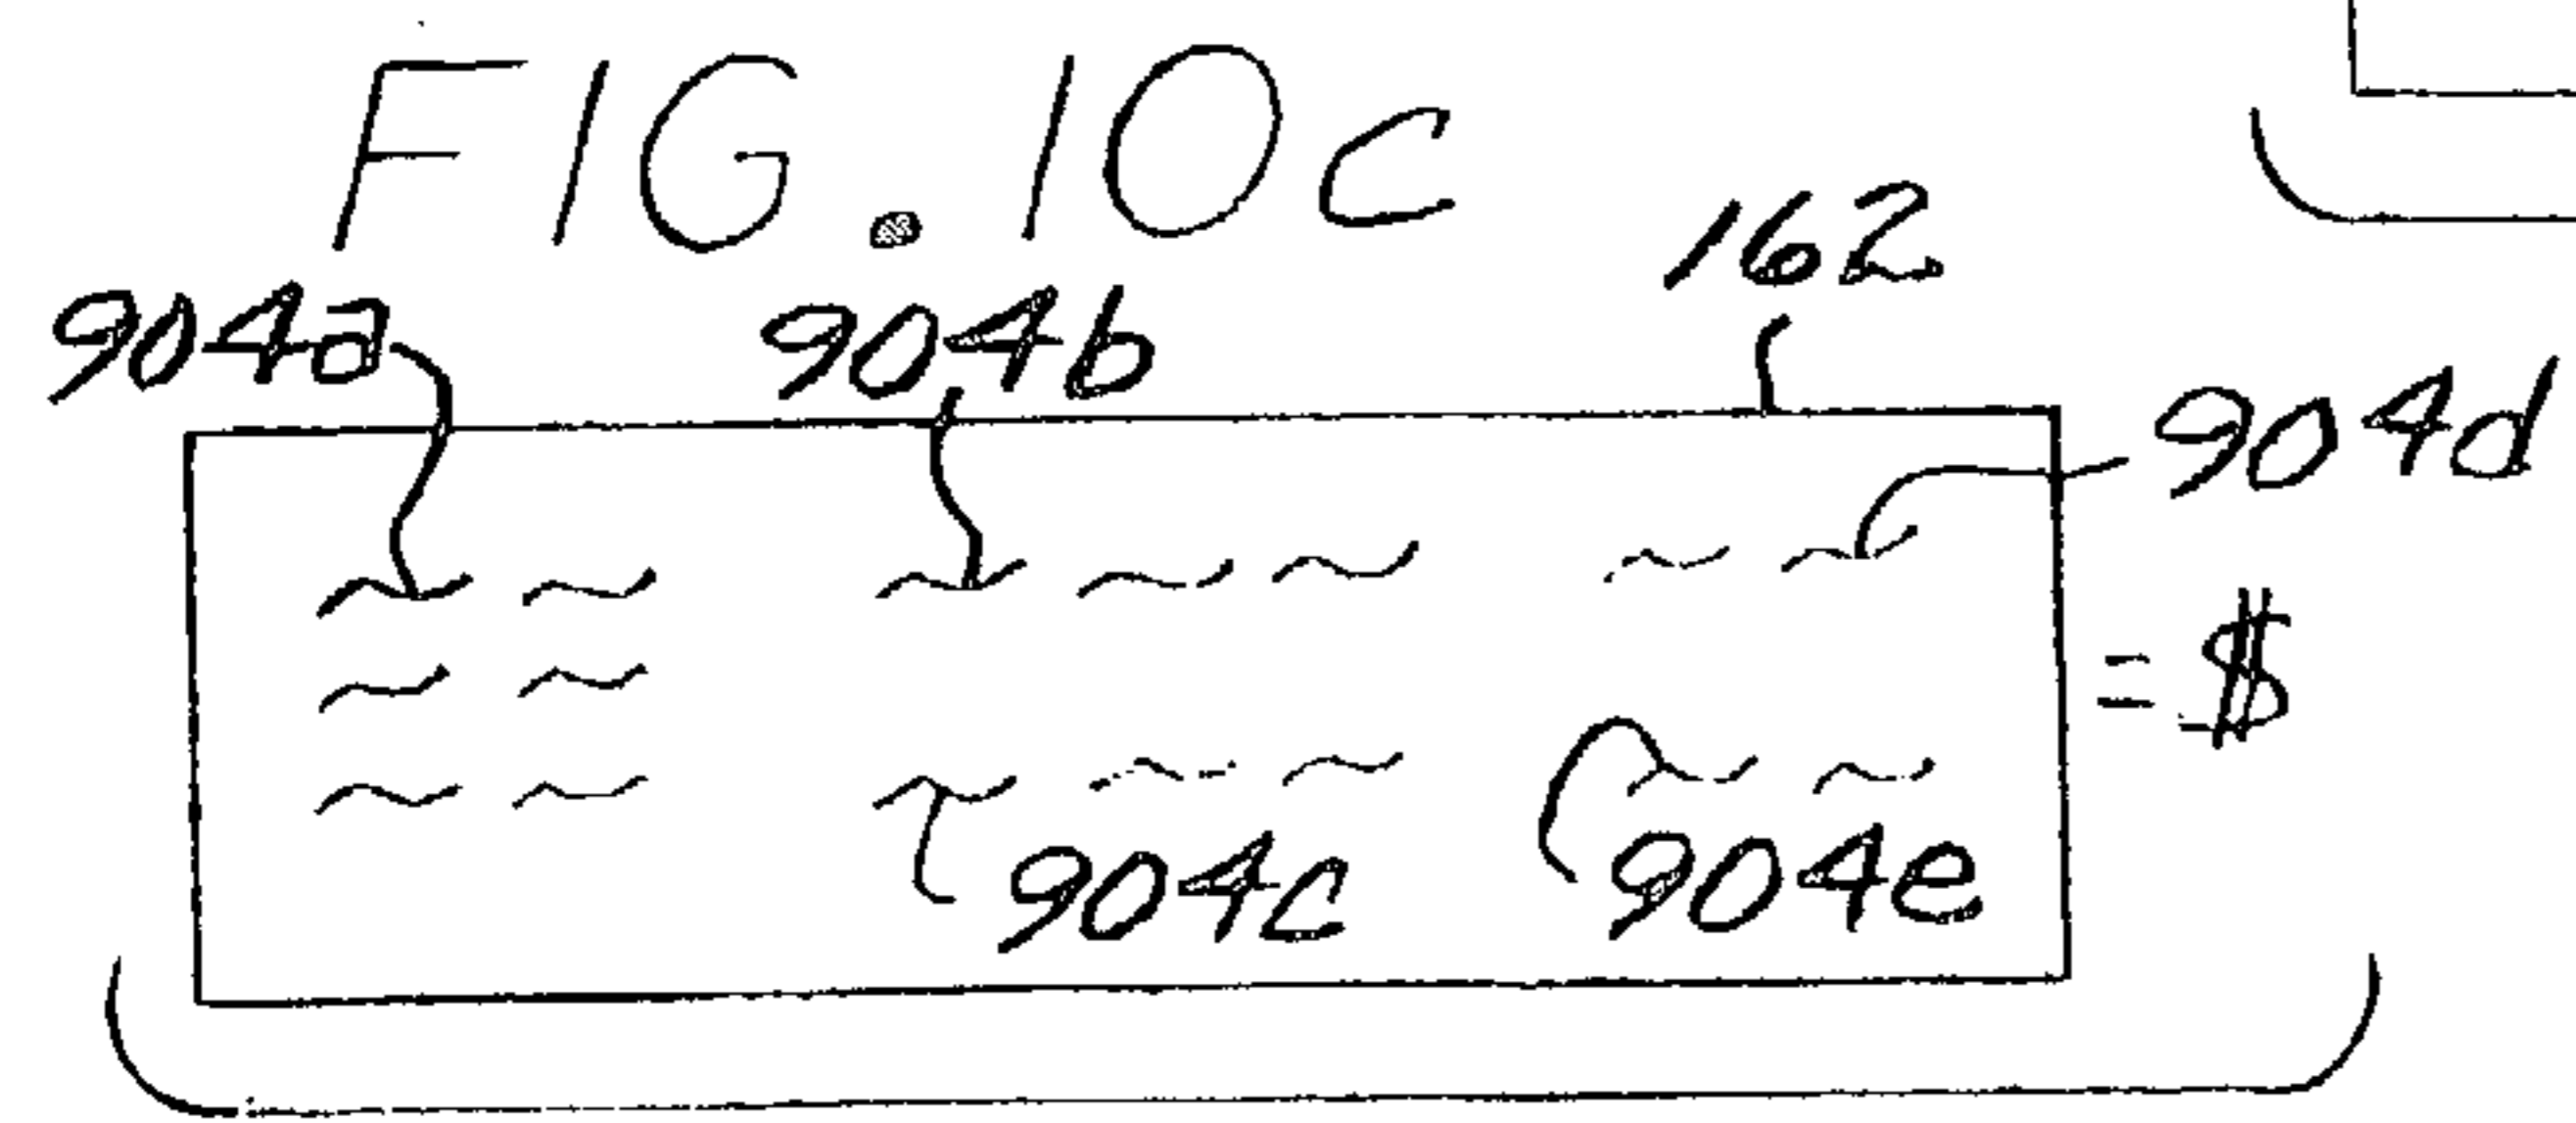 FIG. 10c
162
904a 904b
904d
= $
904c 904e